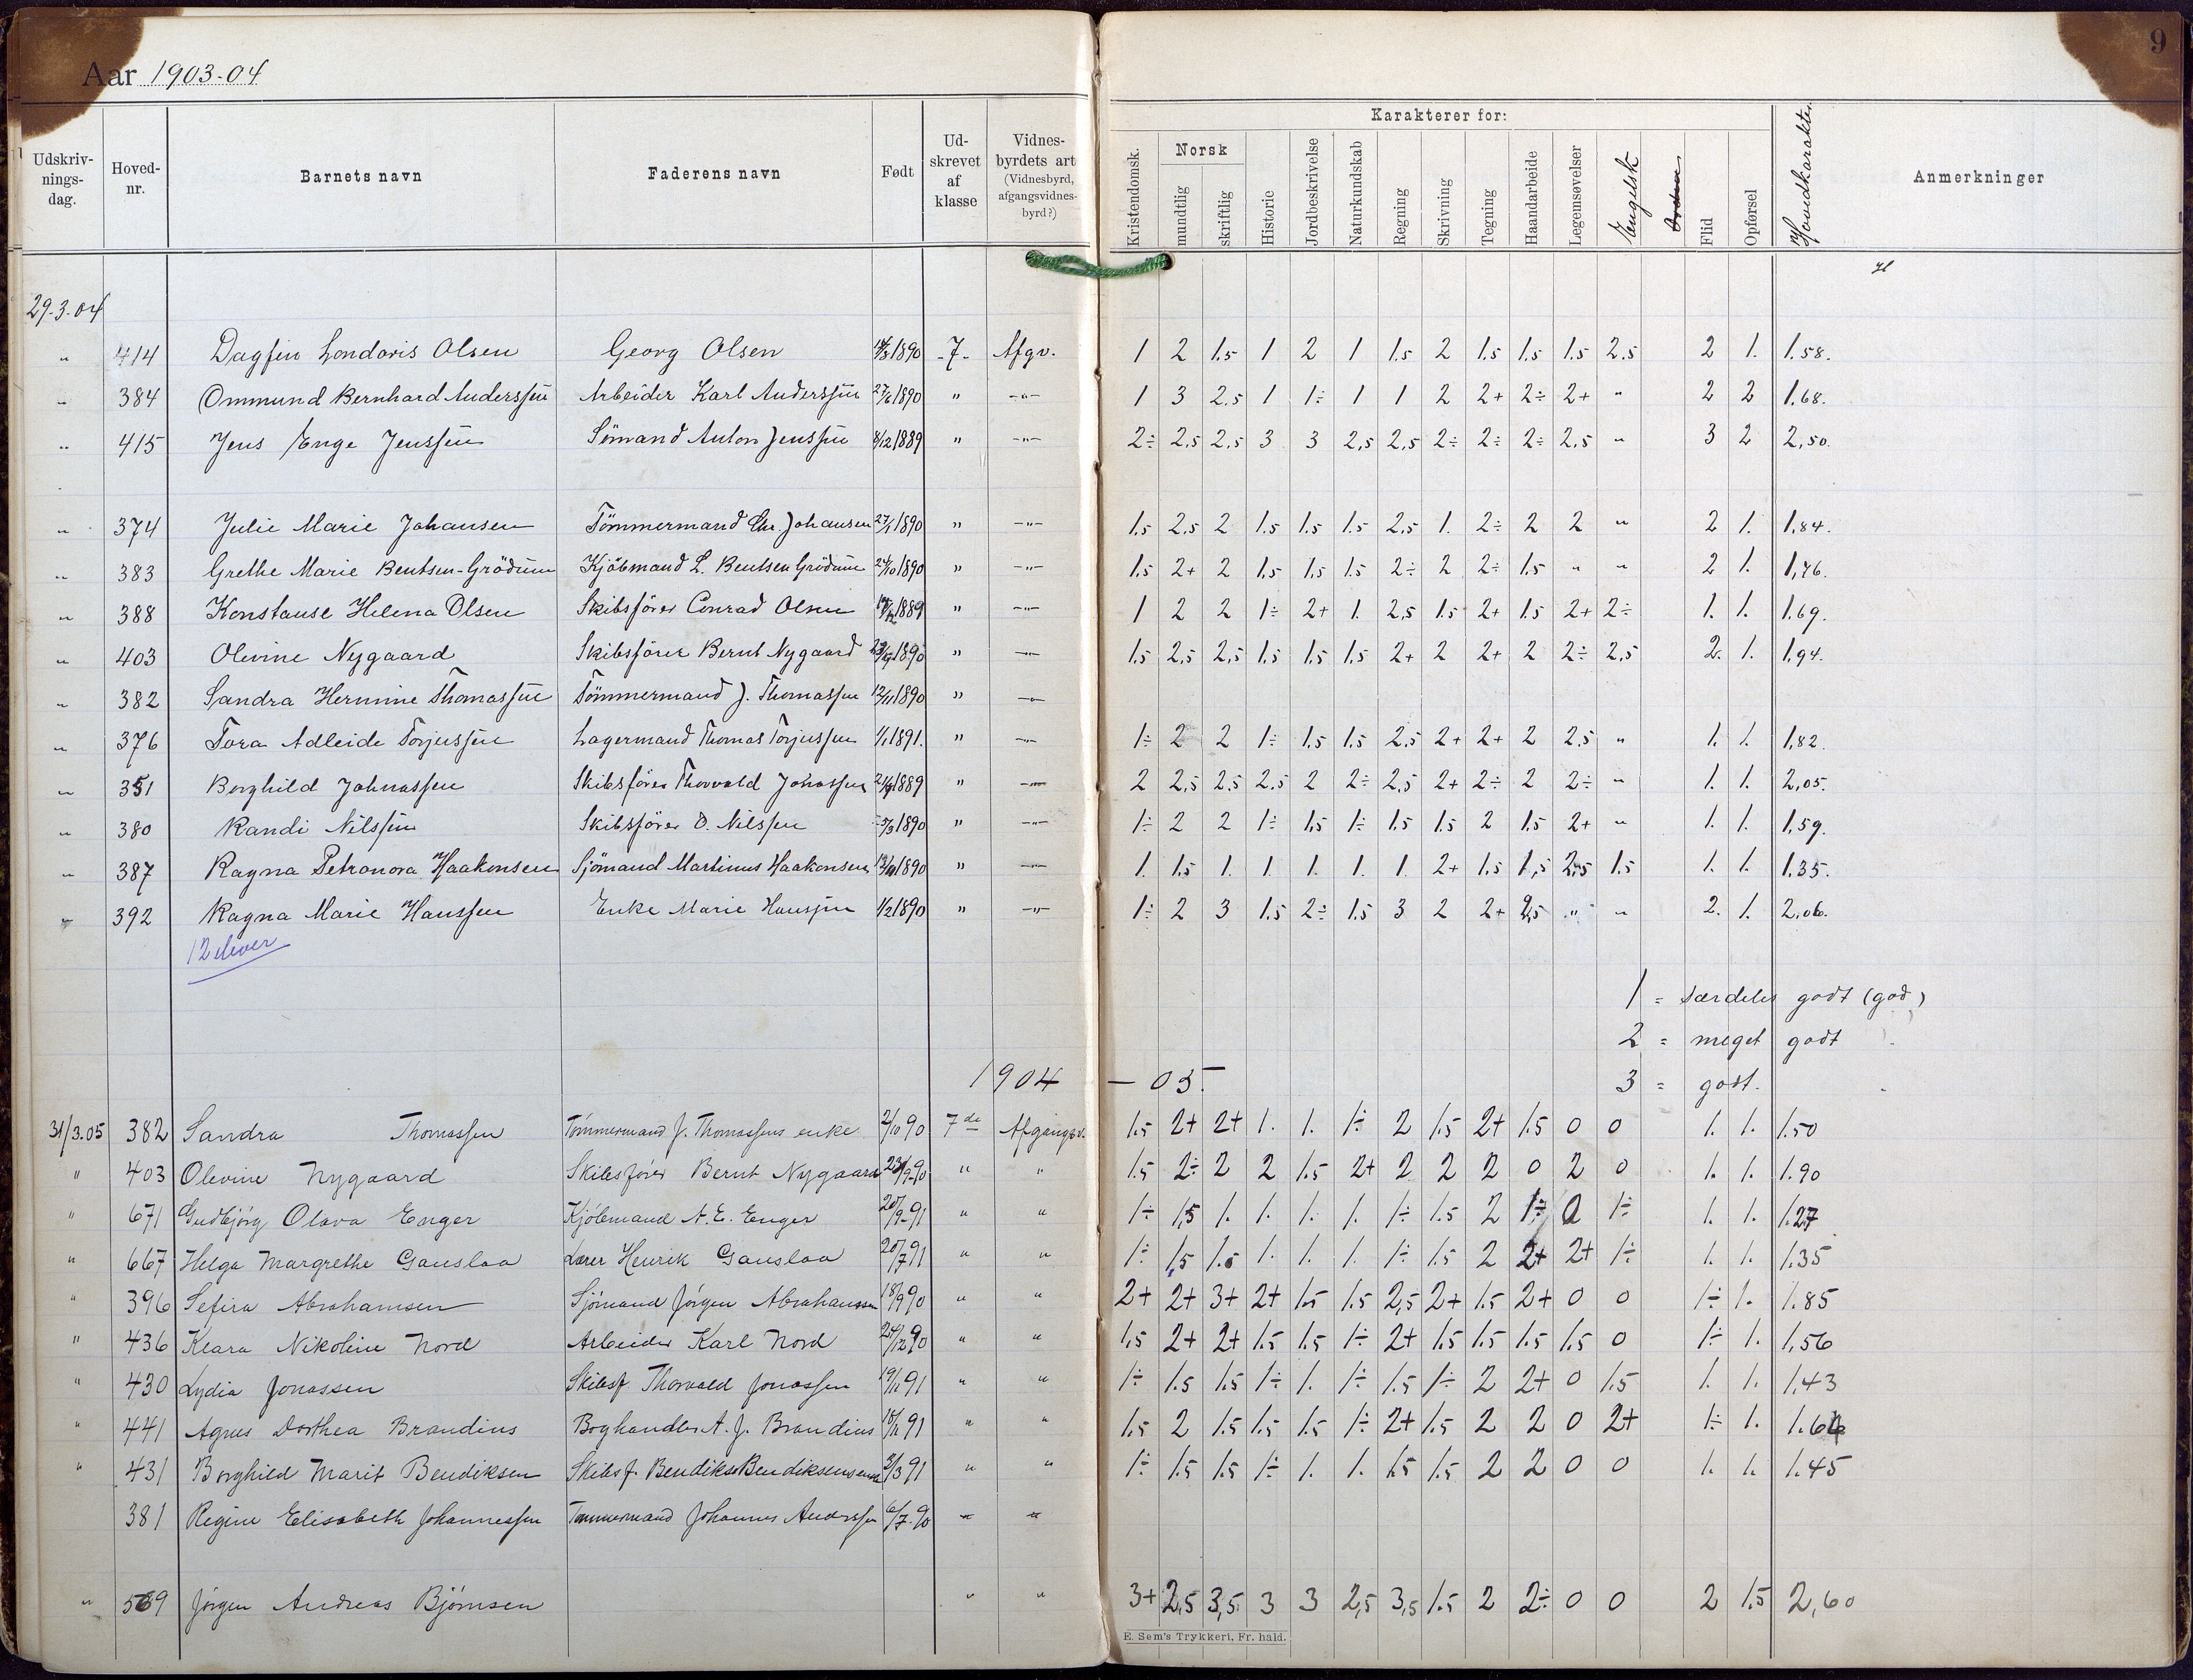 9
Aar 1903-04
Udskrivningsdag. Hovednr. Barnets navn Faderens navn Født Udskrevet af klasse Vidnesbyrdets art (Vidnesbyrd, afgangsvidnesbyrd?)
Karakterer for:
Kristendomsk. Norsk mundtlig skriftlig Historie Jordbeskrivelse Naturkundskab Regning Skrivning Tegning Haandarbeide Legemsøvelser Engelsk Orden Flid Opførsel Hovedkarakter Anmerkninger
29-3-04
" 414 Dagfin Londoris Olsen Georg Olsen 1890 -7- Afgv. 1 2 1.5 1 2 1 1.5 2 1.5 1.5 1.5 2.5 2 1. 1.58.
" 384 Ommund Bernhard Anderssen Arbeider Karl Anderssen 1890 " -"- 1 3 2.5 1 1÷ 1 1 2 2+ 2÷ 2+ " 2 2 1.68.
" 415 Jens Enge Jenssen Sömand Anton Jenssen 8/12 1889 " -"- 2÷ 2.5 2.5 3 3 2,5 2,5 2÷ 2÷ 2÷ 2,5 " 3 2 2,50.
" 374 Julie Marie Johansen Tömmermand Chr. Johansen 27/1 1890 " -"- 1.5 2.5 2 1.5 1.5 1.5 2.5 1. 2÷ 2 2 " 2 1. 1.84.
" 383 Grethe Marie Bentsen-Grödum Kjöbmand L. Bentsen Grödum 24/10 1890 " -"- 1.5 2+ 2 1.5 1.5 1.5 2÷ 2 2÷ 1.5 " " 2 1. 1,76.
" 388 Konstanse Helena Olsen Skibsförer Conrad Olsen 1889 " -"- 1 2 2 1÷ 2+ 1. 2,5 1.5 2+ 1.5 2+ 2÷ 1. 1. 1.69.
" 403 Olevine Nygaard Skibsförer Bernt Nygaard 23/9 1890 " -"- 1.5 2,5 2,5 1.5 1.5 1.5 2+ 2 2+ 2 2÷ 2,5 2. 1. 1.94.
" 382 Sandra Hermine Thomassen Tömmermand J. Thomassen 12/11 1890 " -"-
" 376 Tora Adleide Torjussen Lagermand Thomas Torjussen 1/1 1891. " -"- 1÷ 2 2 1÷ 1.5 1.5 2.5 2+ 2+ 2 2.5 " 1. 1. 1,82.
" 351 Borghild Johnassen Skibsförer Thorvald Jonassen 1889 " -"- 2 2,5 2.5 2.5 2 2÷ 2,5 2+ 2÷ 2 2÷ " 1. 1. 2,05.
" 380 Randi Nilssen Skibsförer O. Nilssen 5/3 1890 " -"- 1÷ 2 2 1÷ 1.5 1÷ 1.5 1.5 2 1.5 2+ " 1. 1. 1,59.
" 387 Ragna Petronora Haakonsen Sjömand Martinus Haakonsen 1890 " -"- 1. 1.5 1. 1. 1. 1. 1. 2+ 1.5 1,5 2,5 1.5 1. 1. 1.35.
" 392 Ragna Marie Hanssen Enke Marie Hanssen 1/2 1890 " -"- 1÷ 2 3 1.5 2÷ 1.5 3 2 2+ 2,5 " " 2. 1. 2,06.
12 elever
1 = særdeles godt (god)
2 = meget godt
1904 — 05.
3 = godt.
31/3.05 382 Sandra Thomassen Tömmermand J. Thomassens enke 2/10 90 7de Afgangsv. 1.5 2+ 2+ 1. 1. 1÷ 2 1.5 2+ 1.5 0 0 1. 1. 1.50
" 403 Olevine Nygaard Skibsförer Bernt Nygaard 23/9-90 " " 1.5 2÷ 2 2 1.5 2+ 2 2 2 0 2 0 1. 1. 1.90
" 671 Gudbjörg Olava Enger Kjöbmand A. E. Enger 20/9-91 " " 1÷ 1,5 1. 1. 1. 1. 1÷ 1.5 2 1÷ 2 1÷ 1. 1. 1.27
" 667 Helga Margrethe Gauslaa Lærer Henrik Gauslaa 20/7 91 " " 1÷ 1,5 1.5 1. 1. 1. 1÷ 1.5 2 2+ 2+ 1÷ 1. 1. 1.35
" 396 Sefira Abrahamsen Sjömand Jörgen Abrahamsen 18/9 90 " " 2+ 2+ 3+ 2+ 1.5 1.5 2,5 2+ 1.5 2+ 0 0 1÷ 1. 1.85
" 436 Klara Nikoline Nord Arbeider Karl Nord 24/12 90 " " 1,5 2+ 2+ 1.5 1.5 1÷ 2+ 1.5 1.5 1.5 1.5 0 1÷ 1. 1,56
" 430 Lydia Jonassen Skibsf. Thorvald Jonassen 91 " " 1÷ 1.5 1.5 1÷ 1. 1÷ 1.5 1÷ 2 2+ 0 1.5 1. 1. 1.43
" 441 Agnes Dorthea Brandius Boghandler A. J. Brandius 91 " " 1.5 2 1.5 1.5 1.5 1÷ 2+ 1.5 2 2 0 2+ 1÷ 1. 1.64
" 431 Borghild Marit Bendiksen Skibsf. Bendiks Bendiksens enke 3/3 91 " " 1÷ 1.5 1.5 1÷ 1. 1. 1.5 1.5 2 2 0 0 1. 1. 1.45
381 Regine Elisabeth Johannessen Tømmermand Johannes Anderssen 6/7-90 " "
" 569 Jörgen Andreas Bjömsen " " 3+ 2,5 3,5 3 3 2,5 3,5 1.5 2 2÷ 0 0 2 1.5 2,60
E. Sem's Trykkeri, Fr. hald.